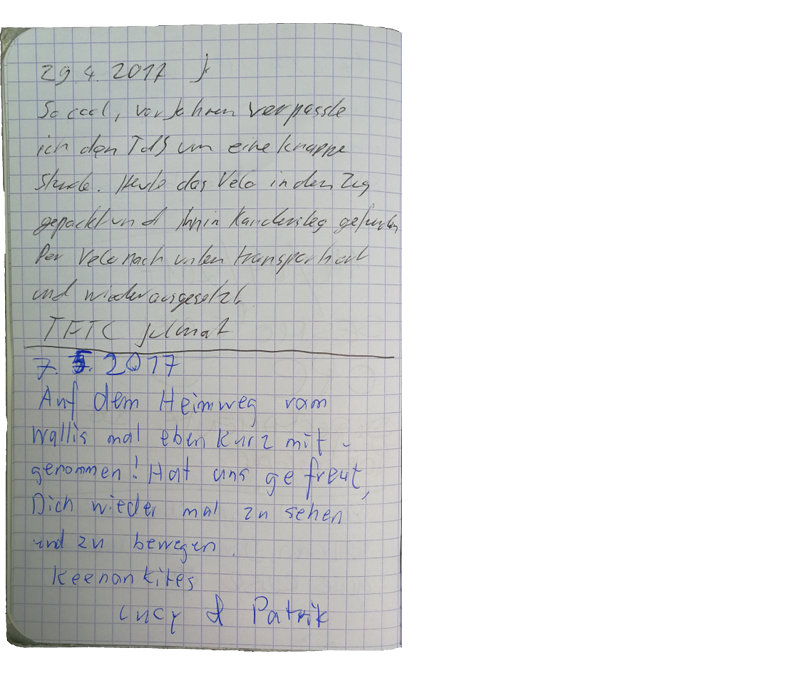 29.4.2017 jr
So cool, vor Jahren verpasste
ich den TdS um eine knappe
Stunde. Heute das Velo in den Zug
gepackt und ihn in Kandersteg gefunden
Per Velo nach unten transportiert
und wieder ausgesetzt.
TFTC
7. 5. 2017
Auf dem Heimweg vom
Wallis mal eben kurz mit-
genommen! Hat uns gefreut,
Dich wieder mal zu sehen
und zu bewegen.
Keenankites
Lucy & Patrik